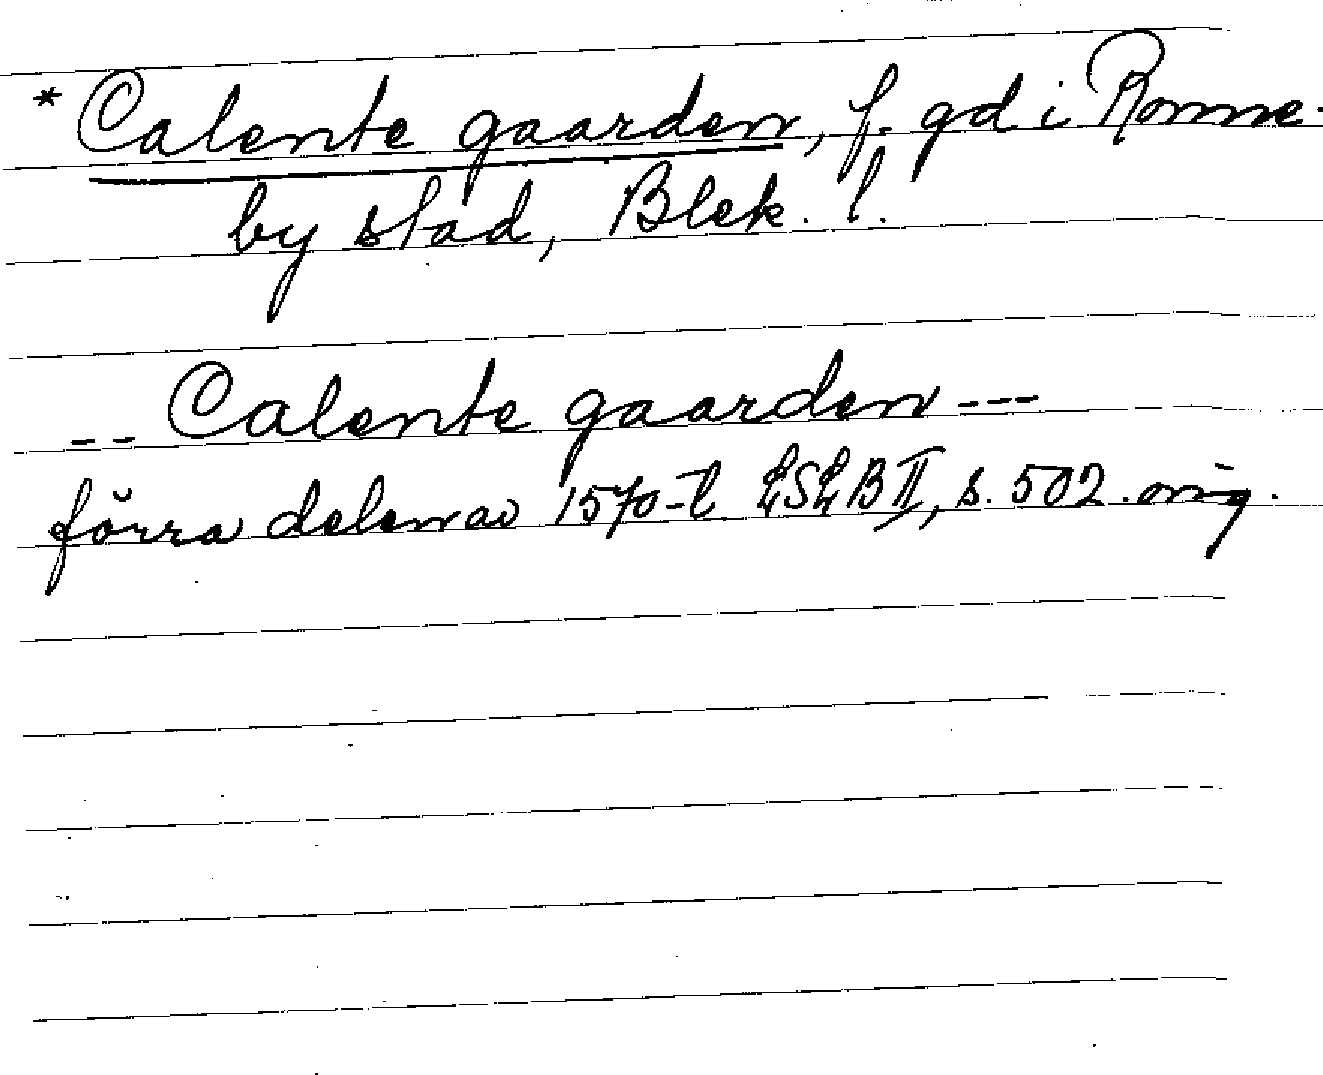 * Calente gaarden, f. gd i Ronne-
by stad, Blek. l.
-- Calente gaarden ---
förra delen av 1570-t LSLB II, s. 502. orig.